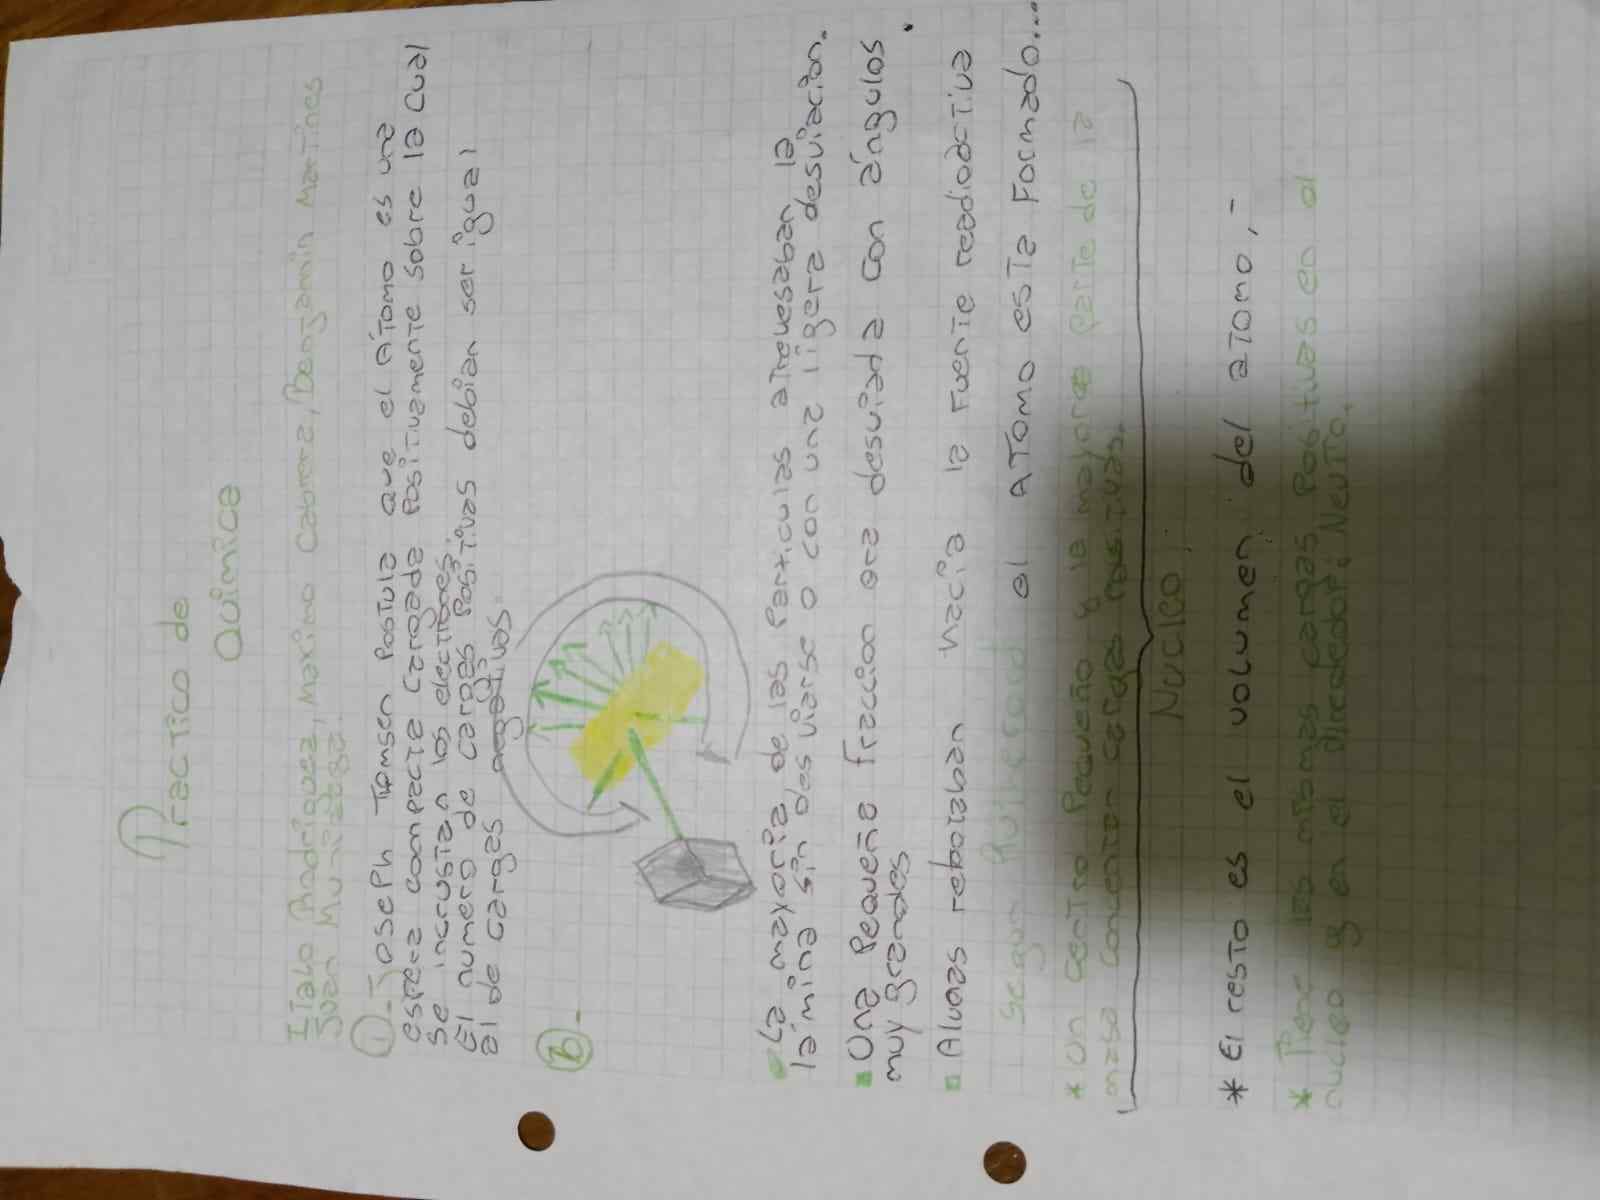 Practico de
Quimica
Italo Rodriguez, Maximo Cabrera, Benjamin Martines
Juan Muniategui.
1-Joseph Tomsen Postula que el átomo es una
esfera compacta cargada Positivamente sobre la cual
se incrustan los electrones.
El numero de cargas Positivas debian ser igual
al de cargas negativas.
b-
La mayoria de las Particulas atravesaban la
lámina sin desviarse o con una ligera desviación.
Una Pequeña fraccion era desviada con ángulos
muy grandes.
Aluvas rebotaban hacia la fuente readioactiva
Segun el ATomo esTa Formado...
* Un centro Pequeño y la mayores parte de la
masa concentran cargas positivas.
Nucleo
* El resto es el volumen del atomo,-
* Tiene las mismas cargas Positivas en el
nucleo y en el alrededor: Neutro.